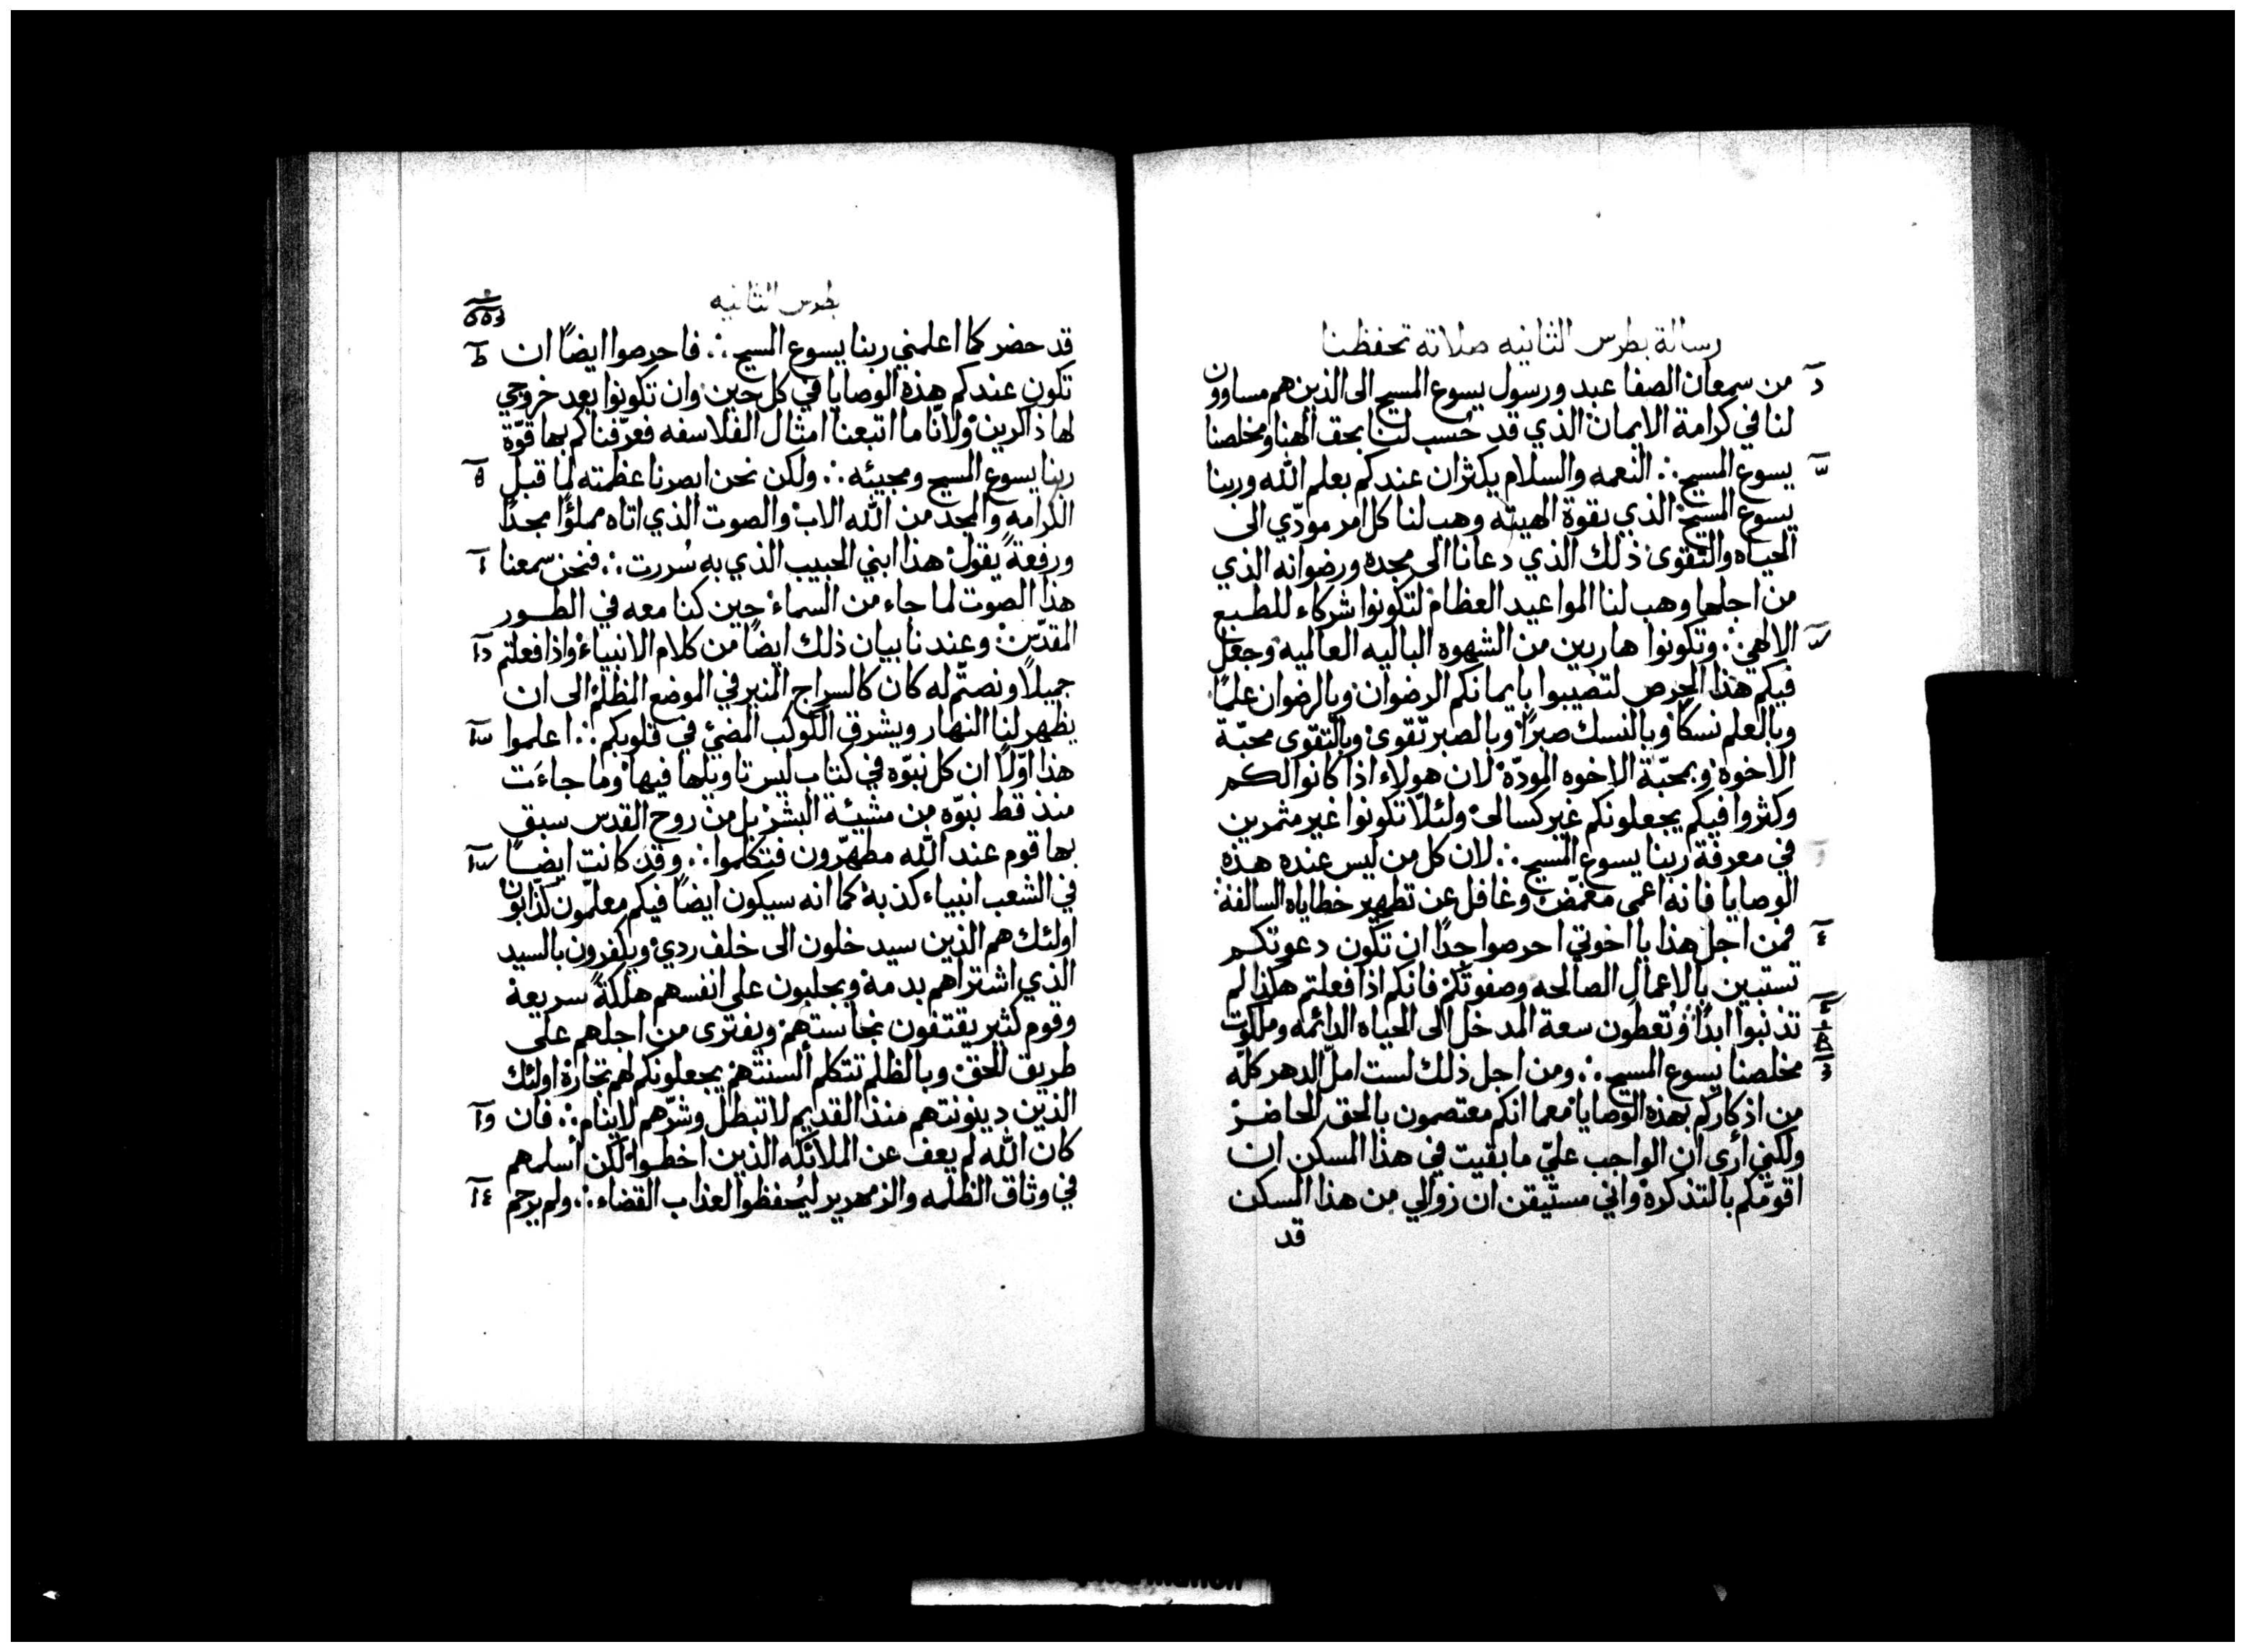 رسالة بطرس الثانيه صلاته تحفظنا
من سمعان الصفا عبد ورسول يسوع المسيح الى الذين هم مساوون
لنا في كرامة الايمان الذي قد حُسب لنا بحق الهنا ومخلصنا
يسوع المسيح ∴ النعمه والسلام يكثران عندكم بعلم الله وربنا
يسوع المسيح الذي بقوة الهيته وهب لنا كل امر مودّي الى
الحياه والتقوى ذلك الذي دعانا الى مجده ورضوانه الذي
من اجلها وهب لنا المواعيد العظام لتكونوا شركاء للطبع
الالهي ∴ وتكونوا هاربين من الشهوه الباليه العالميه وجعل
فيكم هذا الحرص لتصيبوا بايمانكم الرضوان وبالرضوان علمًا
وبالعلم نسكًا وبالنسك صبرًا وبالصبر تقوى وبالتقوى محبّة
الاخوة وبمحبّة الاخوه المودّة لان هولاء اذا كانوا لكم
وكثروا فيكم يجعلونكم غير كسالى ولئلّا تكونوا غير مثمرين
في معرفة ربنا يسوع المسيح ∴ لان كل من ليس عنده هذه
الوصايا فانه اعمى مغمّض وغافل عن تطهير خطاياه السالفة
فمن اجل هذا يا اخوتي احرصوا جدًا ان تكون دعوتكم
تستبين بالاعمال الصالحه وصفوتكم فانكم اذا فعلتم هكذا لم
تذنبوا ابدًا وتعطون سعة المدخل الى الحياه الدائمه وملكوت
مخلصنا يسوع المسيح ∴ ومن اجل ذلك لست املّ الدهر كلّه
من اذكاركم بهذه الوصايا معما انكم معتصمون بالحق الحاضر
ولكني أرى ان الواجب عليّ ما بقيت في هذا المسكن ان
اقوّمكم بالتذكرة واني مستيقن ان زوالي من هذا المسكن
قد
بطرس الثانيه
قد حضر كما اعلمني ربنا يسوع المسيح ∴ فاحرصوا ايضًا ان
تكون عندكم هذه الوصايا في كل حين وان تكونوا بعد خروجي
لها ذاكرين ولانّا ما اتبعنا امثال الفلاسفه فعرّفناكم بها قوّة
ربنا يسوع المسيح ومجيئه ∴ ولكن نحن ابصرنا عظمته لما قبل
الكرامه والمجد من الله الاب والصوت الذي اتاه مملؤًا مجدًا
ورفعةً يقول هذا ابني الحبيب الذي به سُررت ∴ فنحن سمعنا
هذا الصوت لما جاء من السماء حين كنا معه في الطور
المقدّس وعندنا بيان ذلك ايضًا من كلام الانبياء واذا فعلتم
جميلًا ونصتّم له كان كالسراج المنير في الموضع المظلم الى ان
يظهر لنا النهار ويشرق الكوكب المضيّ في قلوبكم ∴ اعلموا
هذا اوّلًا ان كل نبوّه في كتاب ليس تاويلها فيها وما جاءَت
منذ قط نبوّه من مشيئة البشر بل من روح القدس سبق
بها قوم عند الله مطهّرون فتكلموا ∴ وقد كانت ايضًا
في الشعب انبياء كذبة كما انه سيكون ايضًا فيكم معلّمون كذّابون
اولئك هم الذين سيدخلون الى خلف ردي ويكفرون بالسيد
الذي اشتراهم بدمه ويجلبون على انفسهم هلكةً سريعة
وقوم كثير يقتفون نجاستهم ويفترى من اجلهم على
طريق الحق وبالظلم تتكلم ألسنتهم يجعلونكم لهم تجارة اولئك
الذين دينونتهم منذ القديم لا تبطل وشرّهم لا ينام ∴ فان
كان الله لم يعف عن الملائكه الذين اخطوا لكن أسلمهم
في وثاق الظلمه والزمهرير ليُحفظوا لعذاب القضاء ∴ ولم يرحم